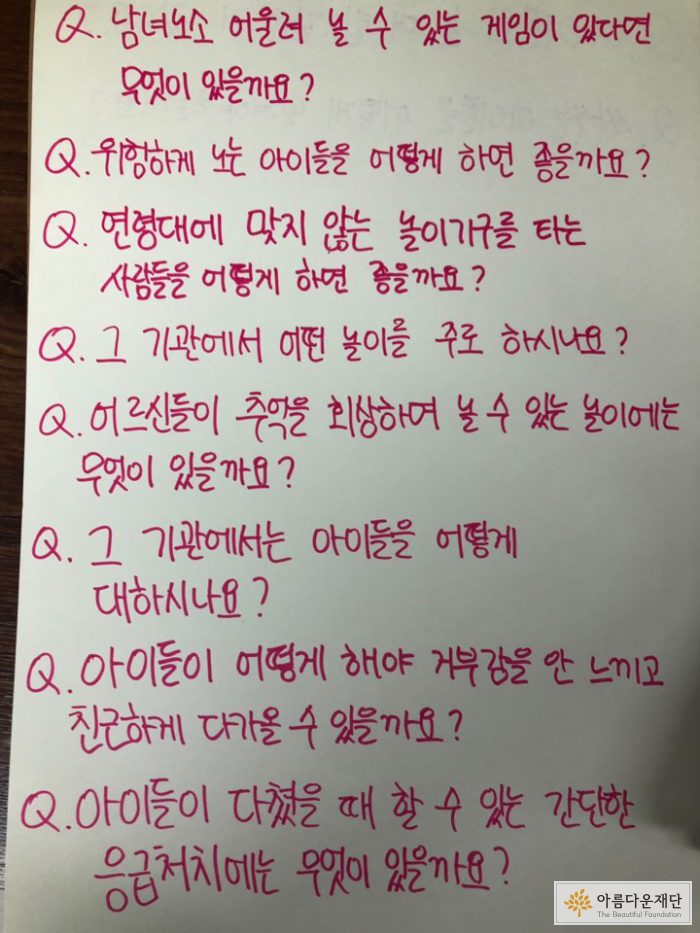 Q. 남녀노소 어울려 놀 수 있는 게임이 있다면
무엇이 있을까요?
Q. 위험하게 노는 아이들을 어떻게 하면 좋을까요?
Q. 연령대에 맞지 않는 놀이기구를 타는
사람들을 어떻게 하면 좋을까요?
Q. 그 기관에서 어떤 놀이를 주로 하시나요?
Q. 어르신들이 추억을 회상하여 놀 수 있는 놀이에는
무엇이 있을까요?
Q. 그 기관에서는 아이들을 어떻게
대하시나요?
Q. 아이들이 어떻게 해야 거부감을 안 느끼고
친근하게 다가올 수 있을까요?
Q. 아이들이 다쳤을 때 할 수 있는 간단한
응급처치에는 무엇이 있을까요?
아름다운재단
The Beautiful Foundation